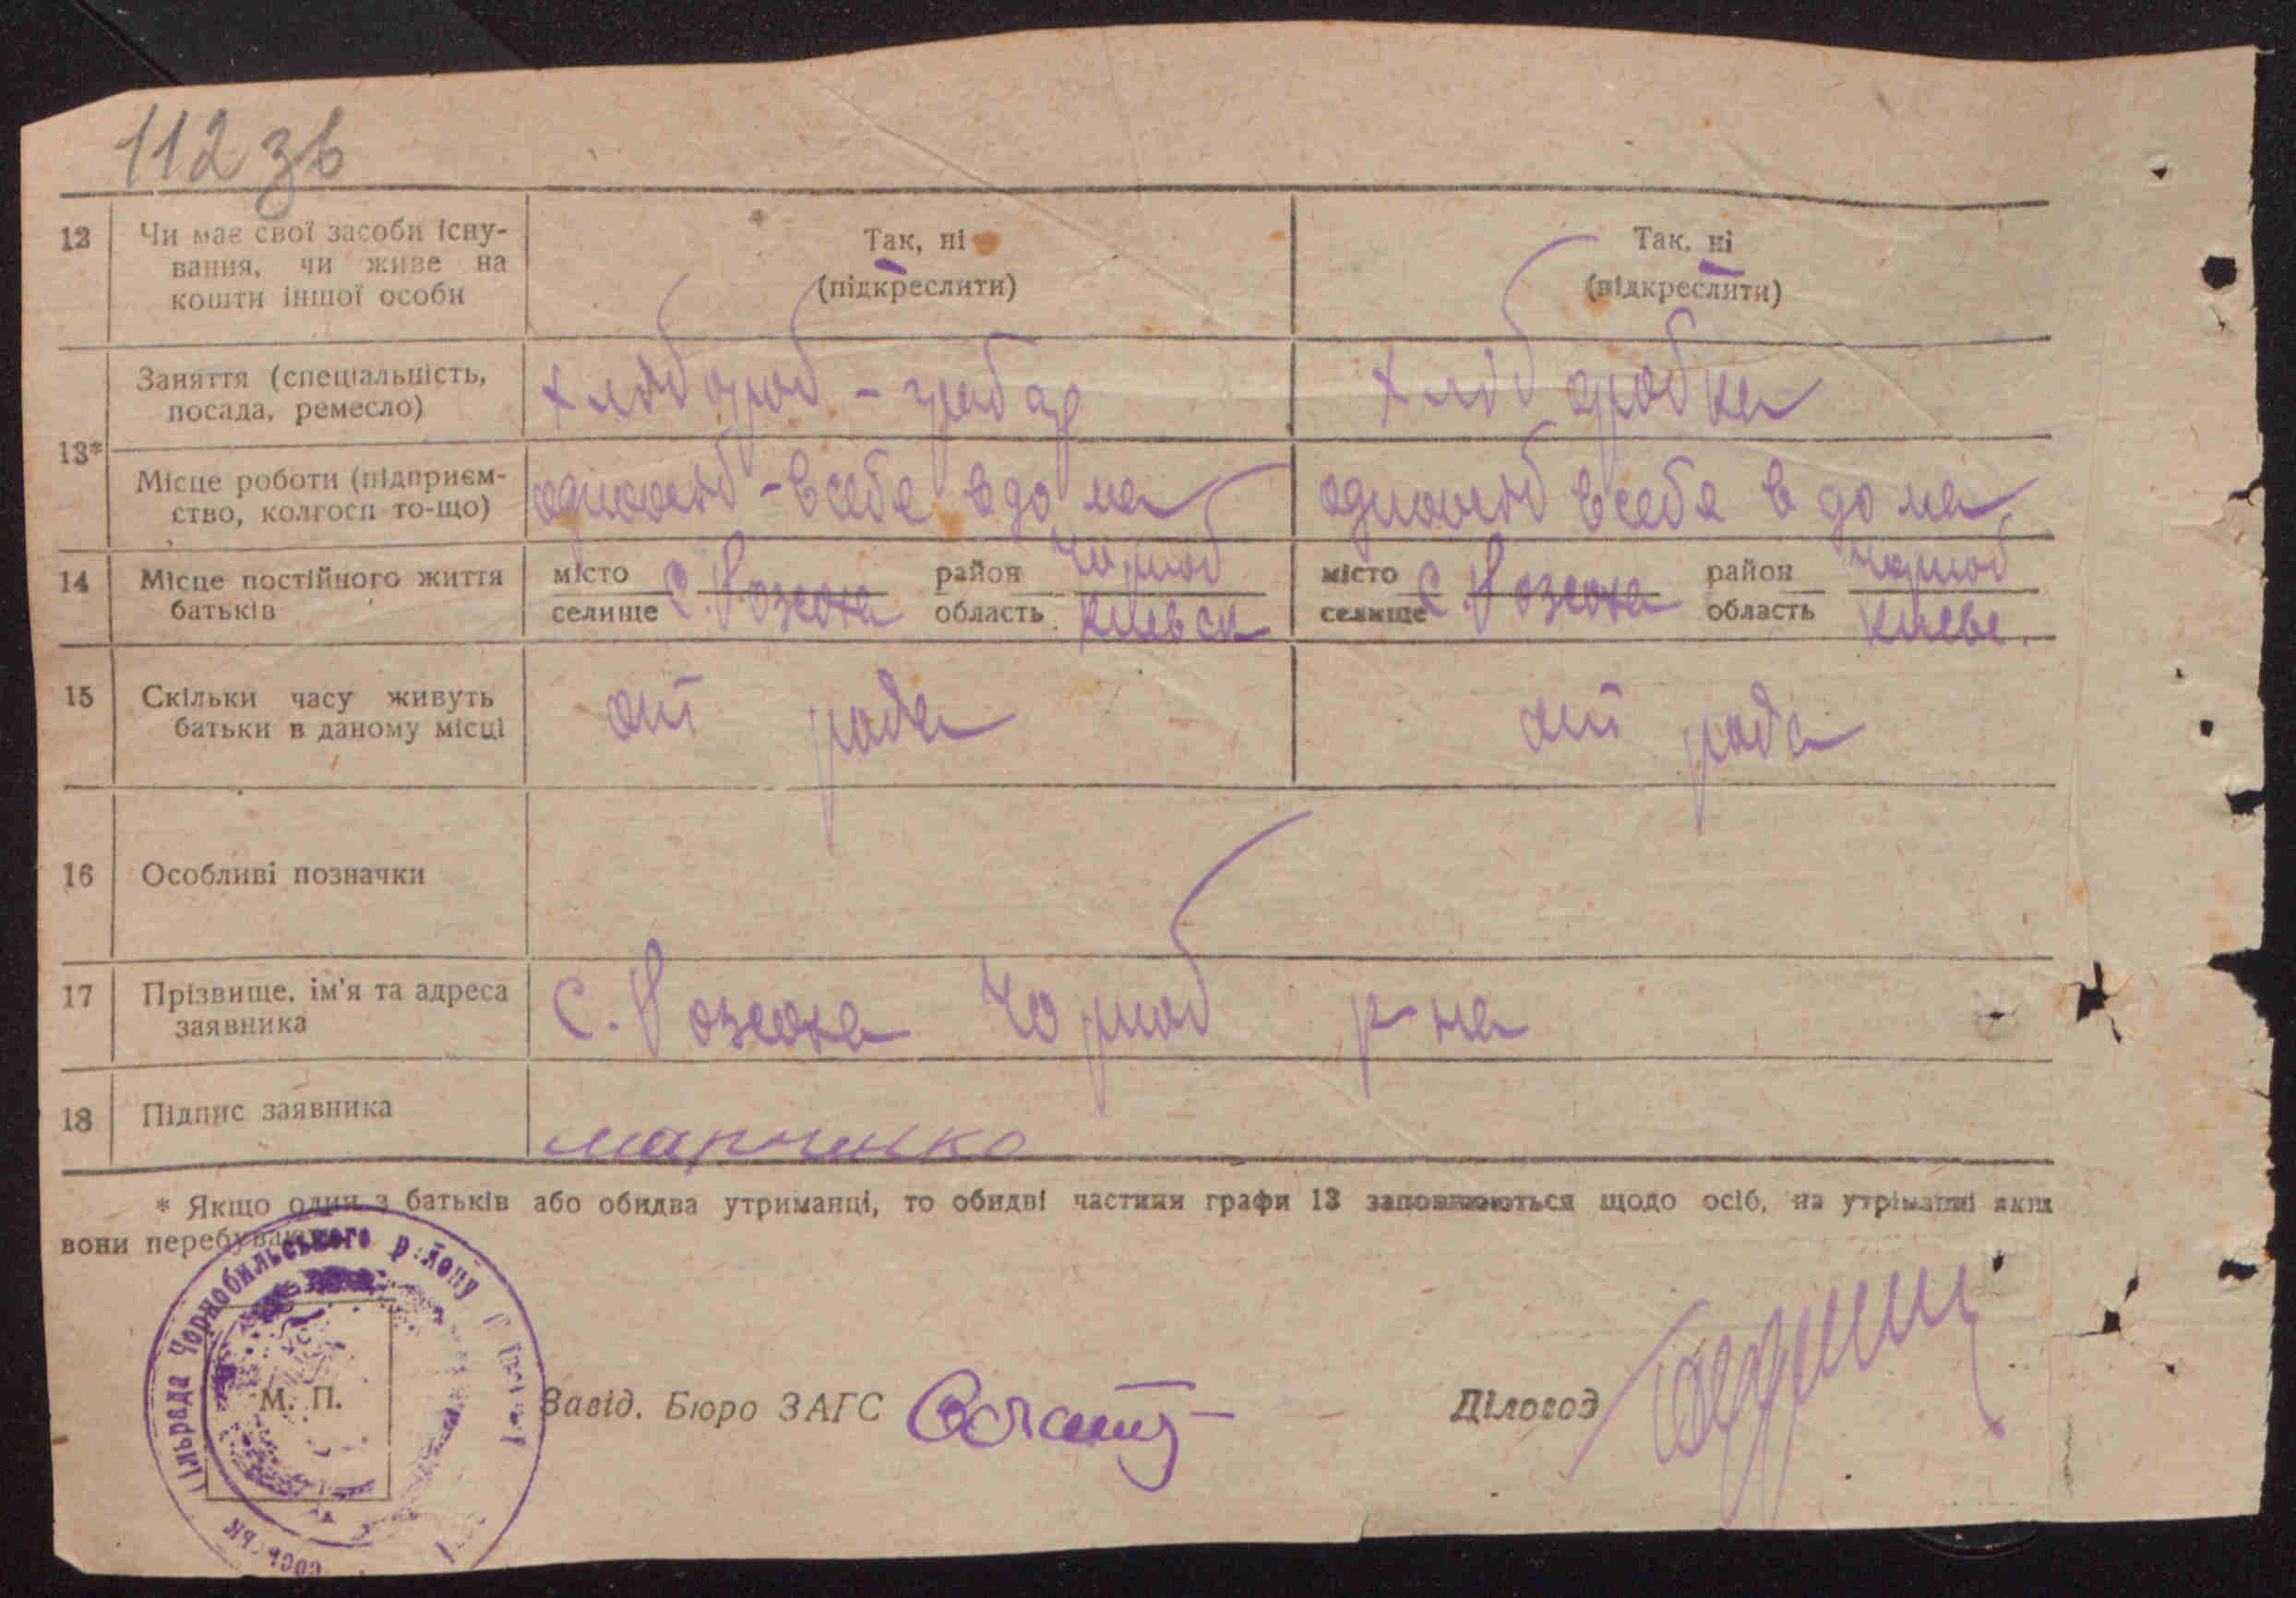 112 зв
12 Чи має свої засоби існу- Так, ні Так, ні
вання, чи живе на (підкреслити) (підкреслити)
кошти іншої особи
Заняття (спеціальність, хлібороб - грабар хліборобка
посада, ремесло)
13*
Місце роботи (підприєм- одноосіб - в себе вдома одноосіб в себе в дома
ство, колгосп то-що)
14 Місце постійного життя місто с. район Чорноб місто с. район Чорноб
батьків селище область Киевск селище область Киевс.
15 Скільки часу живуть от рода от рода
батьки в даному місці
16 Особливі позначки
17 Прізвище, ім'я та адреса с. Чорноб р-на
заявника
18 Підпис заявника марченко
* Якщо один з батьків або обидва утриманці, то обидві частини графи 13 заповнюються щодо осіб, на утриманні яких
вони перебувають
Чорнобильського району
М. П.
Завід. Бюро ЗАГС Діловод